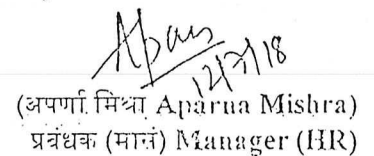 12/7/18
(अपर्णा मिश्रा Aparna Mishra)
प्रबंधक (मासं) Manager (HR)